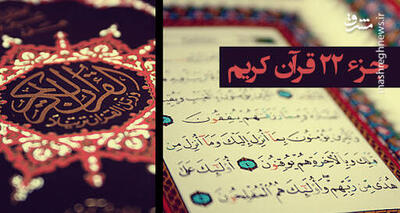 جزء ۲۲ قرآن کریم
مشرق
mashreghnews.ir
القرآن الكريم
ورتل القرآن ترتيلا
ينفقون
يؤمنون بما أنزل إليك وما أنزل من
قبلك وبالآخرة هم يوقنون ٤ أولئك على
هدى من ربهم وأولئك هم المفلحون ٥